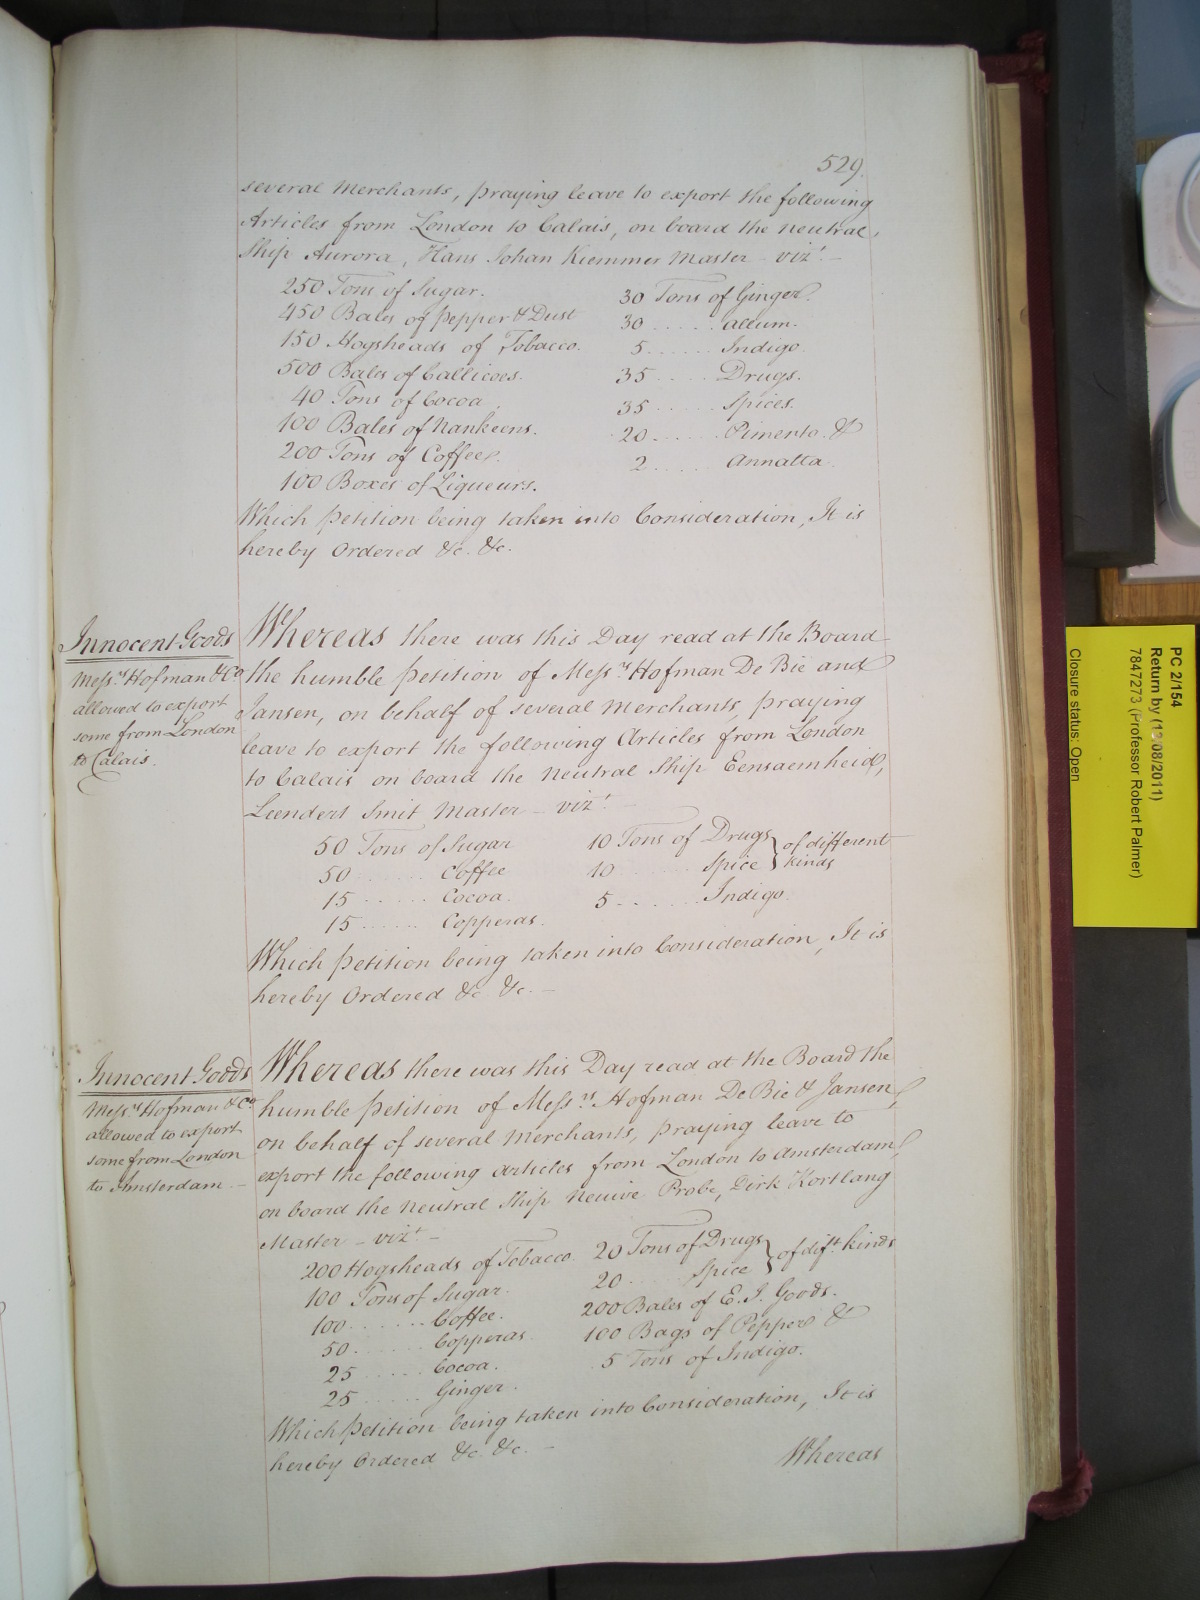 529.
several Merchants, praying leave to export the following
Articles from London to Calais, on board the Neutral
Ship Aurora, Hans Johan Kiemmer Master – vizt. –
250 Tons of Sugar.
450 Bales of Pepper & Dust
150 Hogsheads of Tobacco.
500 Bales of Callicoes.
40 Tons of Cocoa
100 Bales of Nankeens.
200 Tons of Coffee.
100 Boxes of Liqueurs.
30 Tons of Ginger.
30 ...... Allum.
5 ...... Indigo
35 ..... Drugs.
35 ..... Spices.
20 ...... Pimento &
2 ..... Annatta
Which Petition being taken into Consideration, It is
hereby Ordered &c. &c.
Innocent Goods
Messrs. Hofman & Co
allowed to export
some from London
to Calais.
Whereas there was this Day read at the Board
the humble Petition of Messrs. Hofman De Bie and
Jansen, on behalf of several Merchants, praying
leave to export the following Articles from London
to Calais on board the Neutral Ship Eensaemheid,
Leendert Smit Master – vizt. –
50 Tons of Sugar
50 ....... Coffee
15 ...... Cocoa.
15 ...... Copperas.
10 Tons of Drugs } of different
10 ....... Spice } kinds
5 ....... Indigo.
Which Petition being taken into Consideration, It is
hereby Ordered &c &c. –
Innocent Goods
Messrs. Hofman & Co.
allowed to export
some from London
to Amsterdam –
Whereas there was this Day read at the Board the
humble Petition of Messrs. Hofman De Bie & Jansen,
on behalf of several Merchants, praying leave to
export the following Articles from London to Amsterdam,
on board the Neutral Ship Neuive Probe, Dirk Kortlang
Master – vizt. –
200 Hogsheads of Tobacco
100 Tons of Sugar.
100 ....... Coffee.
50 ....... Copperas
25 ...... Cocoa.
25 ...... Ginger.
20 Tons of Drugs } of difft. kinds
20 ...... Spice }
200 Bales of E. I. Goods.
100 Bags of Pepper &
5 Tons of Indigo.
Which Petition being taken into Consideration, It is
hereby Ordered &c &c. –
Whereas
PC 2/154
Return by (08/2011)
7847273 (Professor Robert Palmer)
Closure status: Open